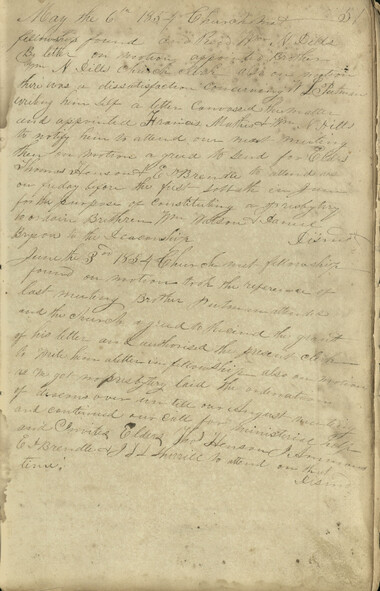 May the 6th 1854 Church met 51
fellowship found and Recd Wm H Dills
By letter on motion appointed Brother
Wm H Dills Church clerk also on motion
there was a dissatisfaction concerning Putnam
writing him self a letter Canvased the matter
and appointed Francis & Wm H Dills
to notify him to attend our next meeting
then on motion agreed to send for Eld
Thomas Henson & E J Brendle to attend us
on friday before the first sabbath in June
for the purpose of constituting a presbytery
to ordain Brethren Wm Wilson & Daniel
Bryson to the Deaconship
Dismt
June the 3rd 1854 Church met fellowship
found on motion took the reference of
last meeting Brother Putnam attended
and the church agreed to the grant
of his letter and authorised the present clerk
to write him a letter in fellowship also on motion
as we got no presbytery laid the ordination
of deacons over untill our August meeting
and continued our call for ministerial help
and Invited Elders Thos Henson
E J Brendle & Sherrill to attend on that
time.
Dismt